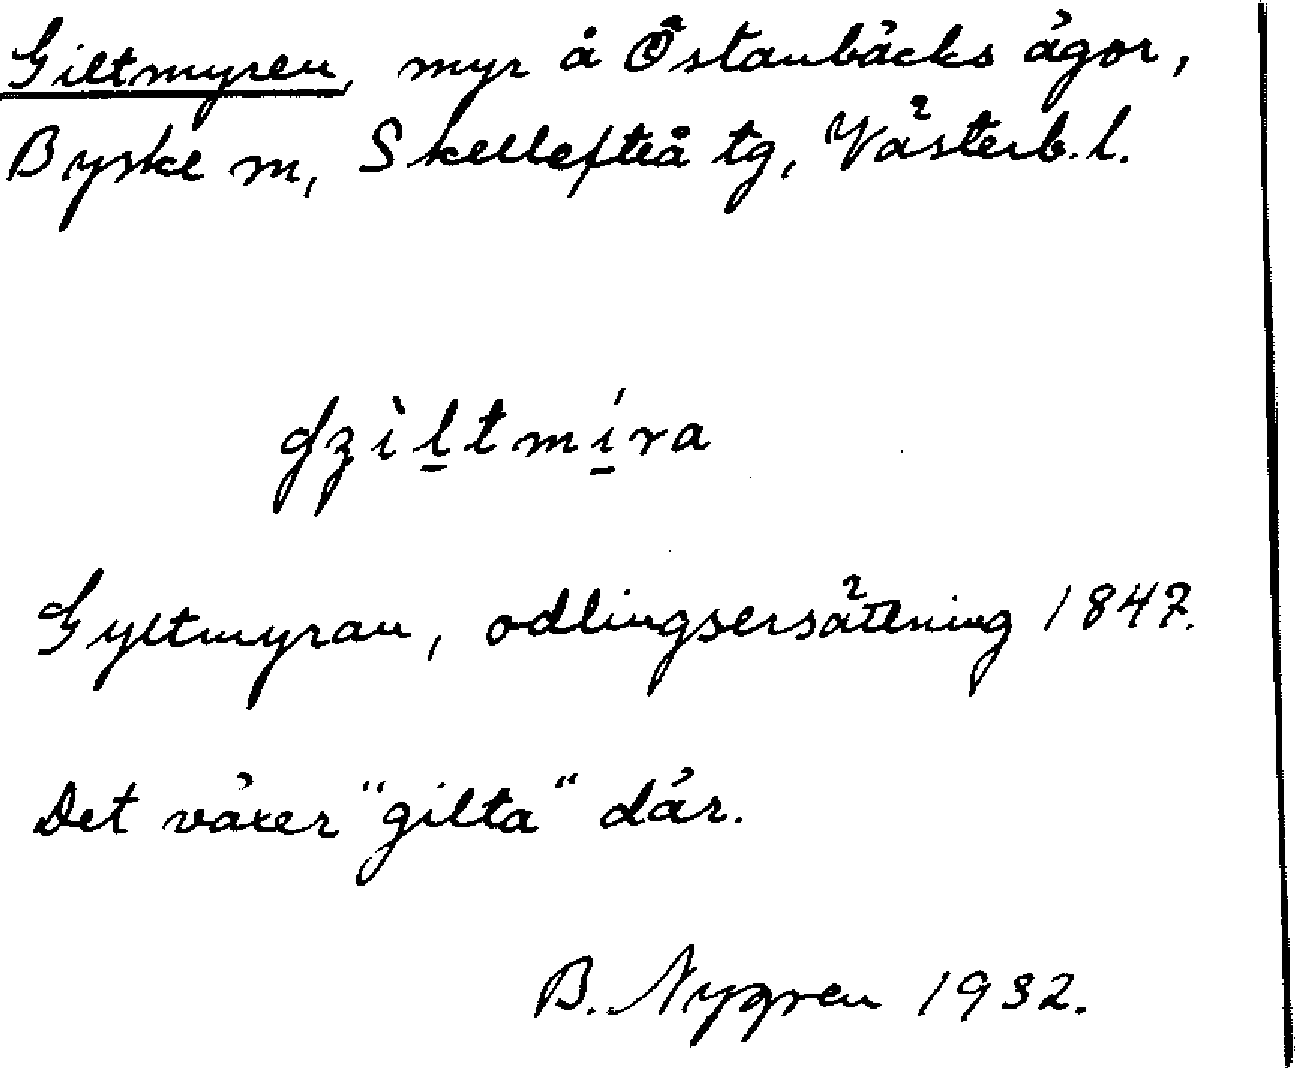 Giltmyren, myr å Östanbäcks ägor,
Byske sn, Skellefteå tg, Västerb. l.
Gyltmyran, odlingsersättning 1847.
Det växer "gilta" där.
B. Nygren 1932.